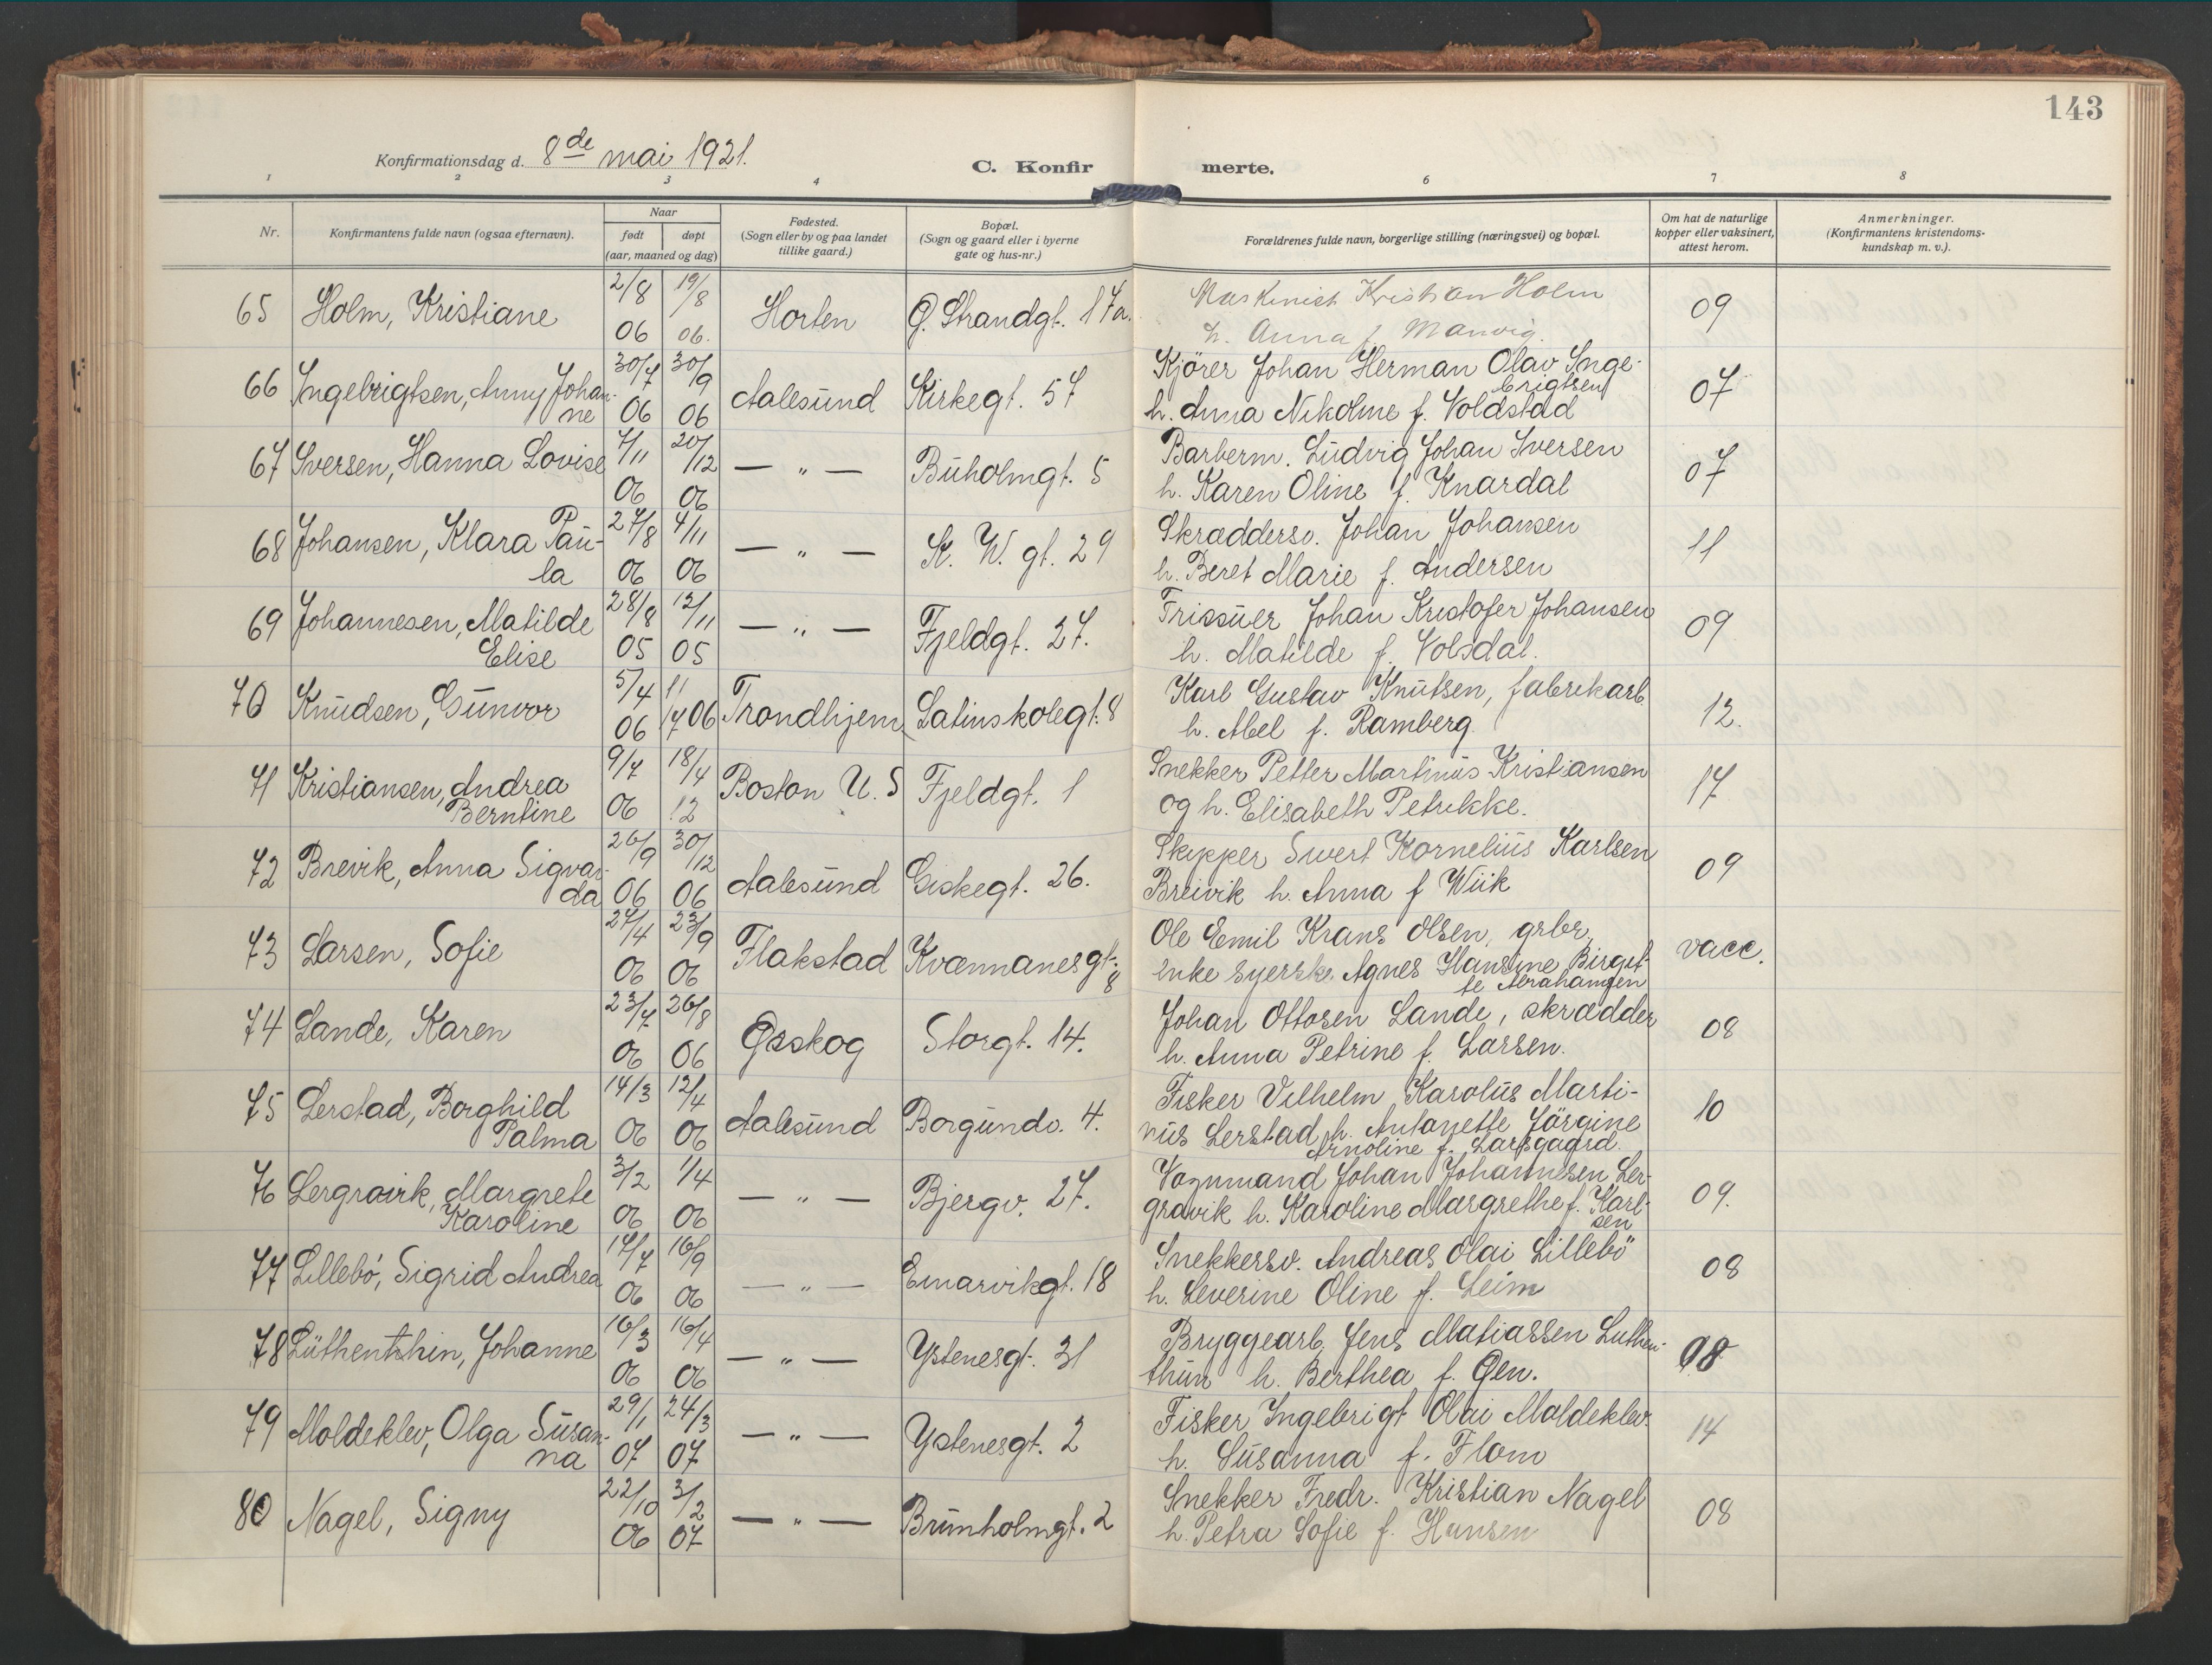 143
Konfirmationsdag d. 8de mai 1921.
C. Konfirmerte.
1 2 3 4 6 7 8
Nr.
Konfirmantens fulde navn (ogsaa efternavn).
Naar
født døpt
(aar, maaned og dag)
Fødested.
(Sogn eller by og paa landet
tillike gaard.)
Bopæl.
(Sogn og gaard eller i byerne
gate og hus-nr.)
Forældrenes fulde navn, borgerlige stilling (næringsvei) og bopæl.
Om hat de naturlige
kopper eller vaksinert,
attest herom.
Anmerkninger.
(Konfirmantens kristendoms-
kundskap m. v.).
65 Holm, Kristiane 2/8 06 19/8 06. Horten Ø. Strandgt. 17a. Maskinist Kristian Holm
h. Anna f. Manvig. 09
66 Ingebrigtsen, Anny Johan-
ne 30/7 06 30/9 06 Aalesund Kirkegt. 57 Kjörer Johan Herman Olav Inge-
brigtsen
h. Anna Nikoline f. Voldstad 07
67 Iversen, Hanna Lovise 7/11 06 20/12 06 — " — Buholmgt. 5 Barberm. Ludvig Johan Iversen
h. Karen Oline f. Knardal 07
68 Johansen, Klara Pau-
la 27/8 06 4/11 06 — " — K. W. gt. 29 Skræddersv. Johan Johansen
h. Beret Marie f. Andersen 11
69 Johannesen, Matilde
Elise 28/8 05 12/11 05 — " — Fjeldgt. 27. Frissuer Johan Kristofer Johansen
h. Matilde f. Volsdal. 09
70 Knudsen, Gunvor 5/4 06 11/7 06 Trondhjem Latinskolegt. 8 Karl Gustav Knutsen, fabrikarb.
h. Abel f. Ramberg. 12.
71 Kristiansen, Andrea
Berntine 9/7 06 18/4 12 Boston U. S Fjeldgt. 1 Snekker Petter Martinus Kristiansen
og h. Elisabeth Petrikke. 17
72 Brevik, Anna Sigvar-
da 26/9 06 30/12 06 Aalesund Giskegt. 26. Skipper Sivert Kornelius Karlsen
Breivik h. Anna f Wiik 09
73 Larsen, Sofie 27/4 06 23/9 06 Flakstad Kvænnanesgt.
8 Ole Emil Krans Olsen, grbr,
enke syerske Agnes Hansine Birget-
te Abrahamsen vacc.
74 Lande, Karen 23/7 06 26/8 06 Ørskog Storgt. 14. Johan Ottosen Lande, skrædder
h. Anna Petrine f. Larsen. 08
75 Lerstad, Borghild
Palma 14/3 06 12/4 06 Aalesund Borgundv. 4. Fisker Vilhelm Karolus Marti-
nus Lerstad h. Antonette Jörgine
Arnoline f. Larsgaard. 10
76 Lergravik, Margrete
Karoline 3/2 06 1/4 06 — " — Bjergv. 27. Vognmand Johan Johannesen Ler-
gravik h. Karoline Margrethe f. Karl-
sen 09.
77 Lillebö, Sigrid Andrea 14/7 06 16/9 06 — " — Einarvikgt. 18 Snekkersv. Andreas Olai Lillebö
h. Severine Oline f. Leim 08
78 Lüthenthün, Johanne 16/3 06 16/4 06 — " — Ystenesgt. 31 Bryggearb. Jens Matiassen Luthen-
thün h. Berthea f. Øen. 08
79 Moldeklev, Olga Susan-
na 29/1 07 24/3 07 — " — Ystenesgt. 2 Fisker Ingebrigt Olai Moldeklev
h. Susanna f. Flom 14
80 Nagel, Signy 22/10 06 3/2 07 — " — Brunholmgt. 2 Snekker Fredr. Kristian Nagel
h. Petra Sofie f. Hansen 08